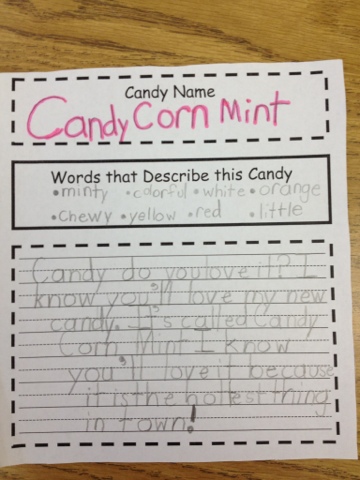 Candy Name
Candy Corn Mint
Words that Describe this Candy
•minty •colorful •white •orange
•Chewy •yellow •red •little
Candy do you love it? I
know you'll love my new
candy. It's called Candy
Corn Mint I know
you'll love it because
it is the hottest thing
in town!